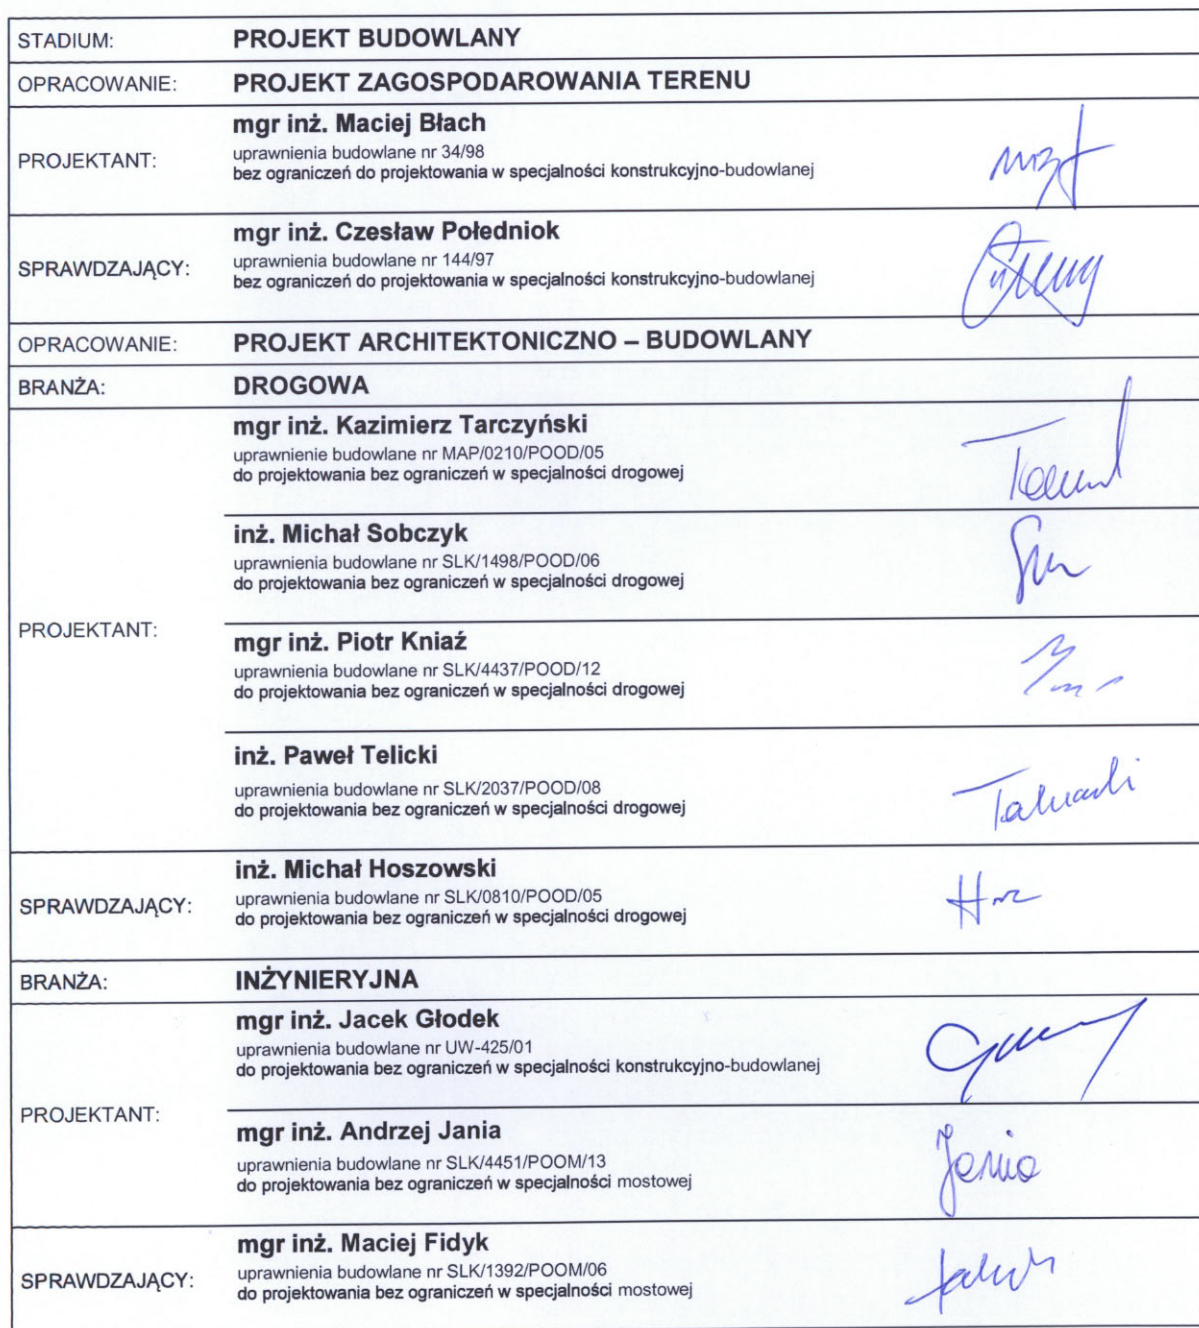 STADIUM: PROJEKT BUDOWLANY
OPRACOWANIE: PROJEKT ZAGOSPODAROWANIA TERENU
PROJEKTANT:
mgr inż. Maciej Błach
uprawnienia budowlane nr 34/98
bez ograniczeń do projektowania w specjalności konstrukcyjno-budowlanej
SPRAWDZAJĄCY:
mgr inż. Czesław Połedniok
uprawnienia budowlane nr 144/97
bez ograniczeń do projektowania w specjalności konstrukcyjno-budowlanej
OPRACOWANIE: PROJEKT ARCHITEKTONICZNO – BUDOWLANY
BRANŻA: DROGOWA
PROJEKTANT:
mgr inż. Kazimierz Tarczyński
uprawnienie budowlane nr MAP/0210/POOD/05
do projektowania bez ograniczeń w specjalności drogowej
inż. Michał Sobczyk
uprawnienia budowlane nr SLK/1498/POOD/06
do projektowania bez ograniczeń w specjalności drogowej
mgr inż. Piotr Kniaź
uprawnienia budowlane nr SLK/4437/POOD/12
do projektowania bez ograniczeń w specjalności drogowej
inż. Paweł Telicki
uprawnienia budowlane nr SLK/2037/POOD/08
do projektowania bez ograniczeń w specjalności drogowej
SPRAWDZAJĄCY:
inż. Michał Hoszowski
uprawnienia budowlane nr SLK/0810/POOD/05
do projektowania bez ograniczeń w specjalności drogowej
BRANŻA: INŻYNIERYJNA
PROJEKTANT:
mgr inż. Jacek Głodek
uprawnienia budowlane nr UW-425/01
do projektowania bez ograniczeń w specjalności konstrukcyjno-budowlanej
mgr inż. Andrzej Jania
uprawnienia budowlane nr SLK/4451/POOM/13
do projektowania bez ograniczeń w specjalności mostowej
Jania
SPRAWDZAJĄCY:
mgr inż. Maciej Fidyk
uprawnienia budowlane nr SLK/1392/POOM/06
do projektowania bez ograniczeń w specjalności mostowej